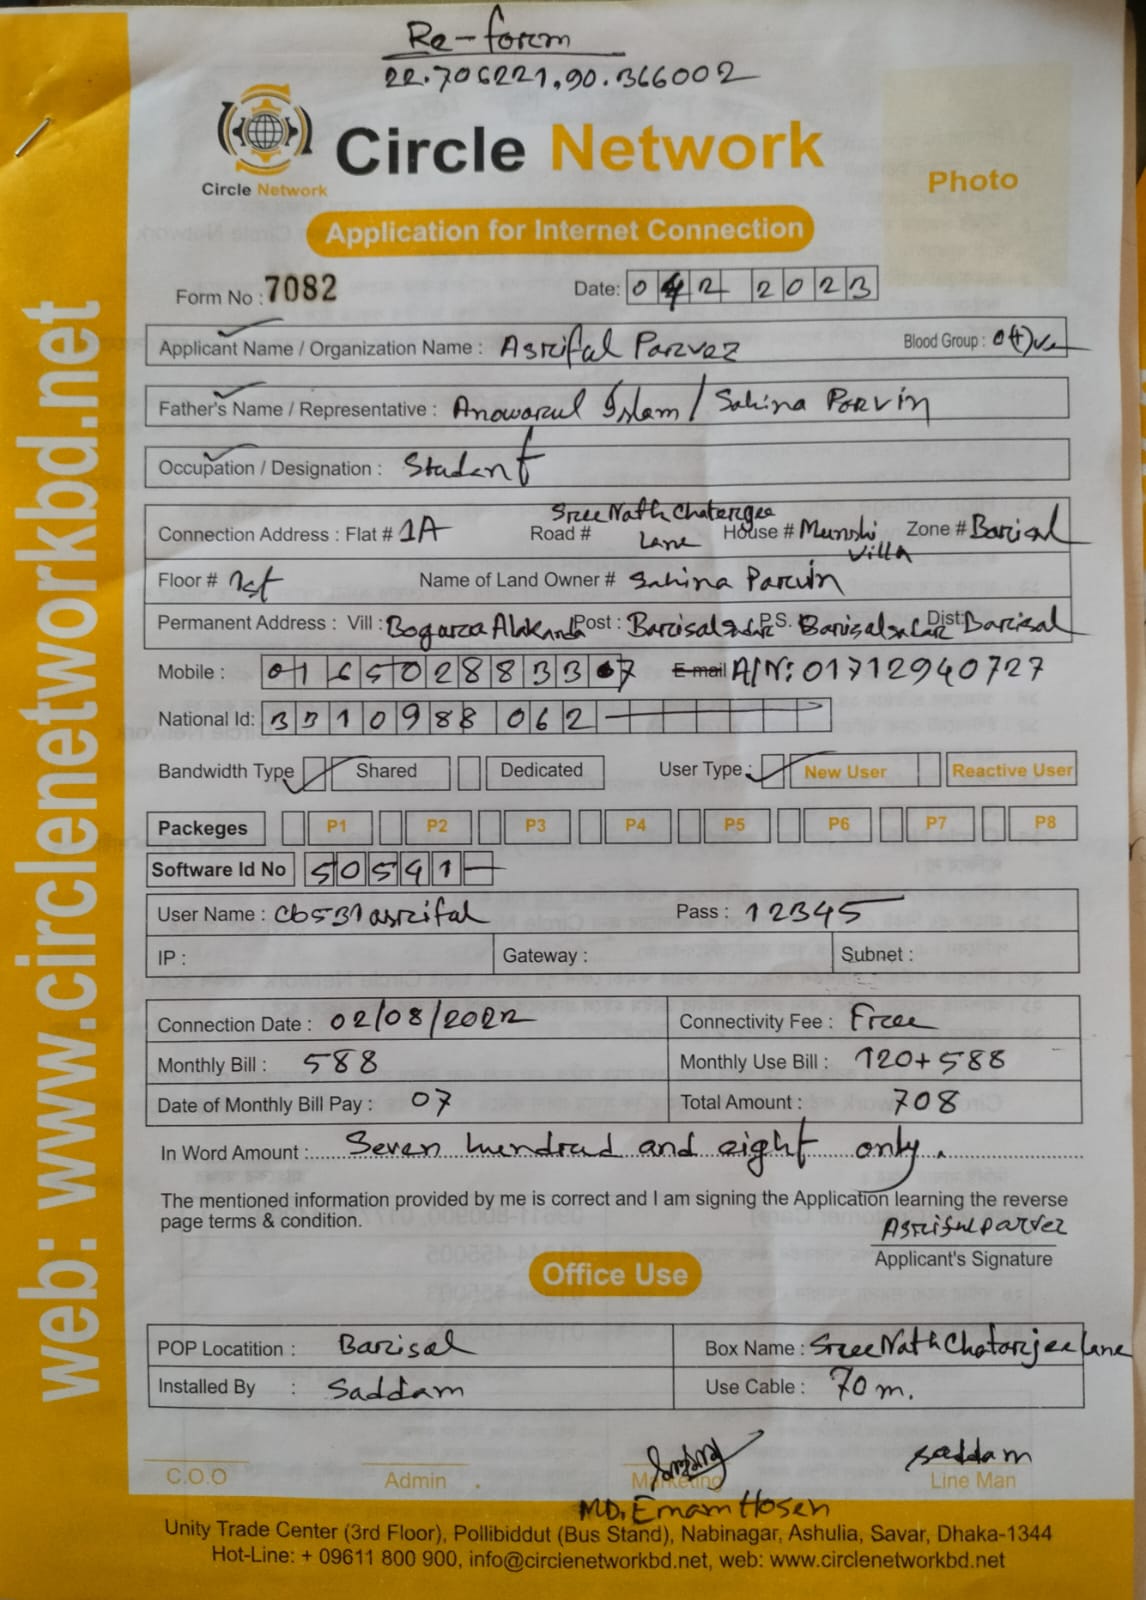 Re-form
22.706221,90.366002
Circle Network
Circle Network
Photo
Application for Internet Connection
Form No : 7082
Date: 0 4 2 2 0 2 3
Applicant Name / Organization Name : Asriful Parvez Blood Group : O(+)ve
Father's Name / Representative : Anowarul Islam / Sahina Parvin
Occupation / Designation : Student
Connection Address : Flat # 1A Road # SreeNath Chaterjee Lane House # Munshi Villa Zone # Barisal
Floor # 1st Name of Land Owner # Sahina Parvin
Permanent Address : Vill : Bogura Alakanda Post : Barisal sadar P.S. Barisal sadar Dist: Barisal
Mobile : 01650288337 E-mail A/N: 01712940727
National Id: 3310988062
Bandwidth Type Shared Dedicated User Type : New User Reactive User
Packeges P1 P2 P3 P4 P5 P6 P7 P8
Software Id No 50541
User Name : cb531asriful Pass : 12345
IP : Gateway : Subnet :
Connection Date : 02/08/2022 Connectivity Fee : Free
Monthly Bill : 588 Monthly Use Bill : 120+588
Date of Monthly Bill Pay : 07 Total Amount : 708
In Word Amount : Seven hundrad and eight only.
The mentioned information provided by me is correct and I am signing the Application learning the reverse
page terms & condition.
Asrifulparvez
Applicant's Signature
Office Use
POP Locatition : Barisal Box Name : SreeNath Chatarjee lane
Installed By : Saddam Use Cable : 70 m.
saddam
C.O.O Admin Marketing Line Man
MD. Emam Hosen
Unity Trade Center (3rd Floor), Pollibiddut (Bus Stand), Nabinagar, Ashulia, Savar, Dhaka-1344
Hot-Line: + 09611 800 900, info@circlenetworkbd.net, web: www.circlenetworkbd.net
web: www.circlenetworkbd.net